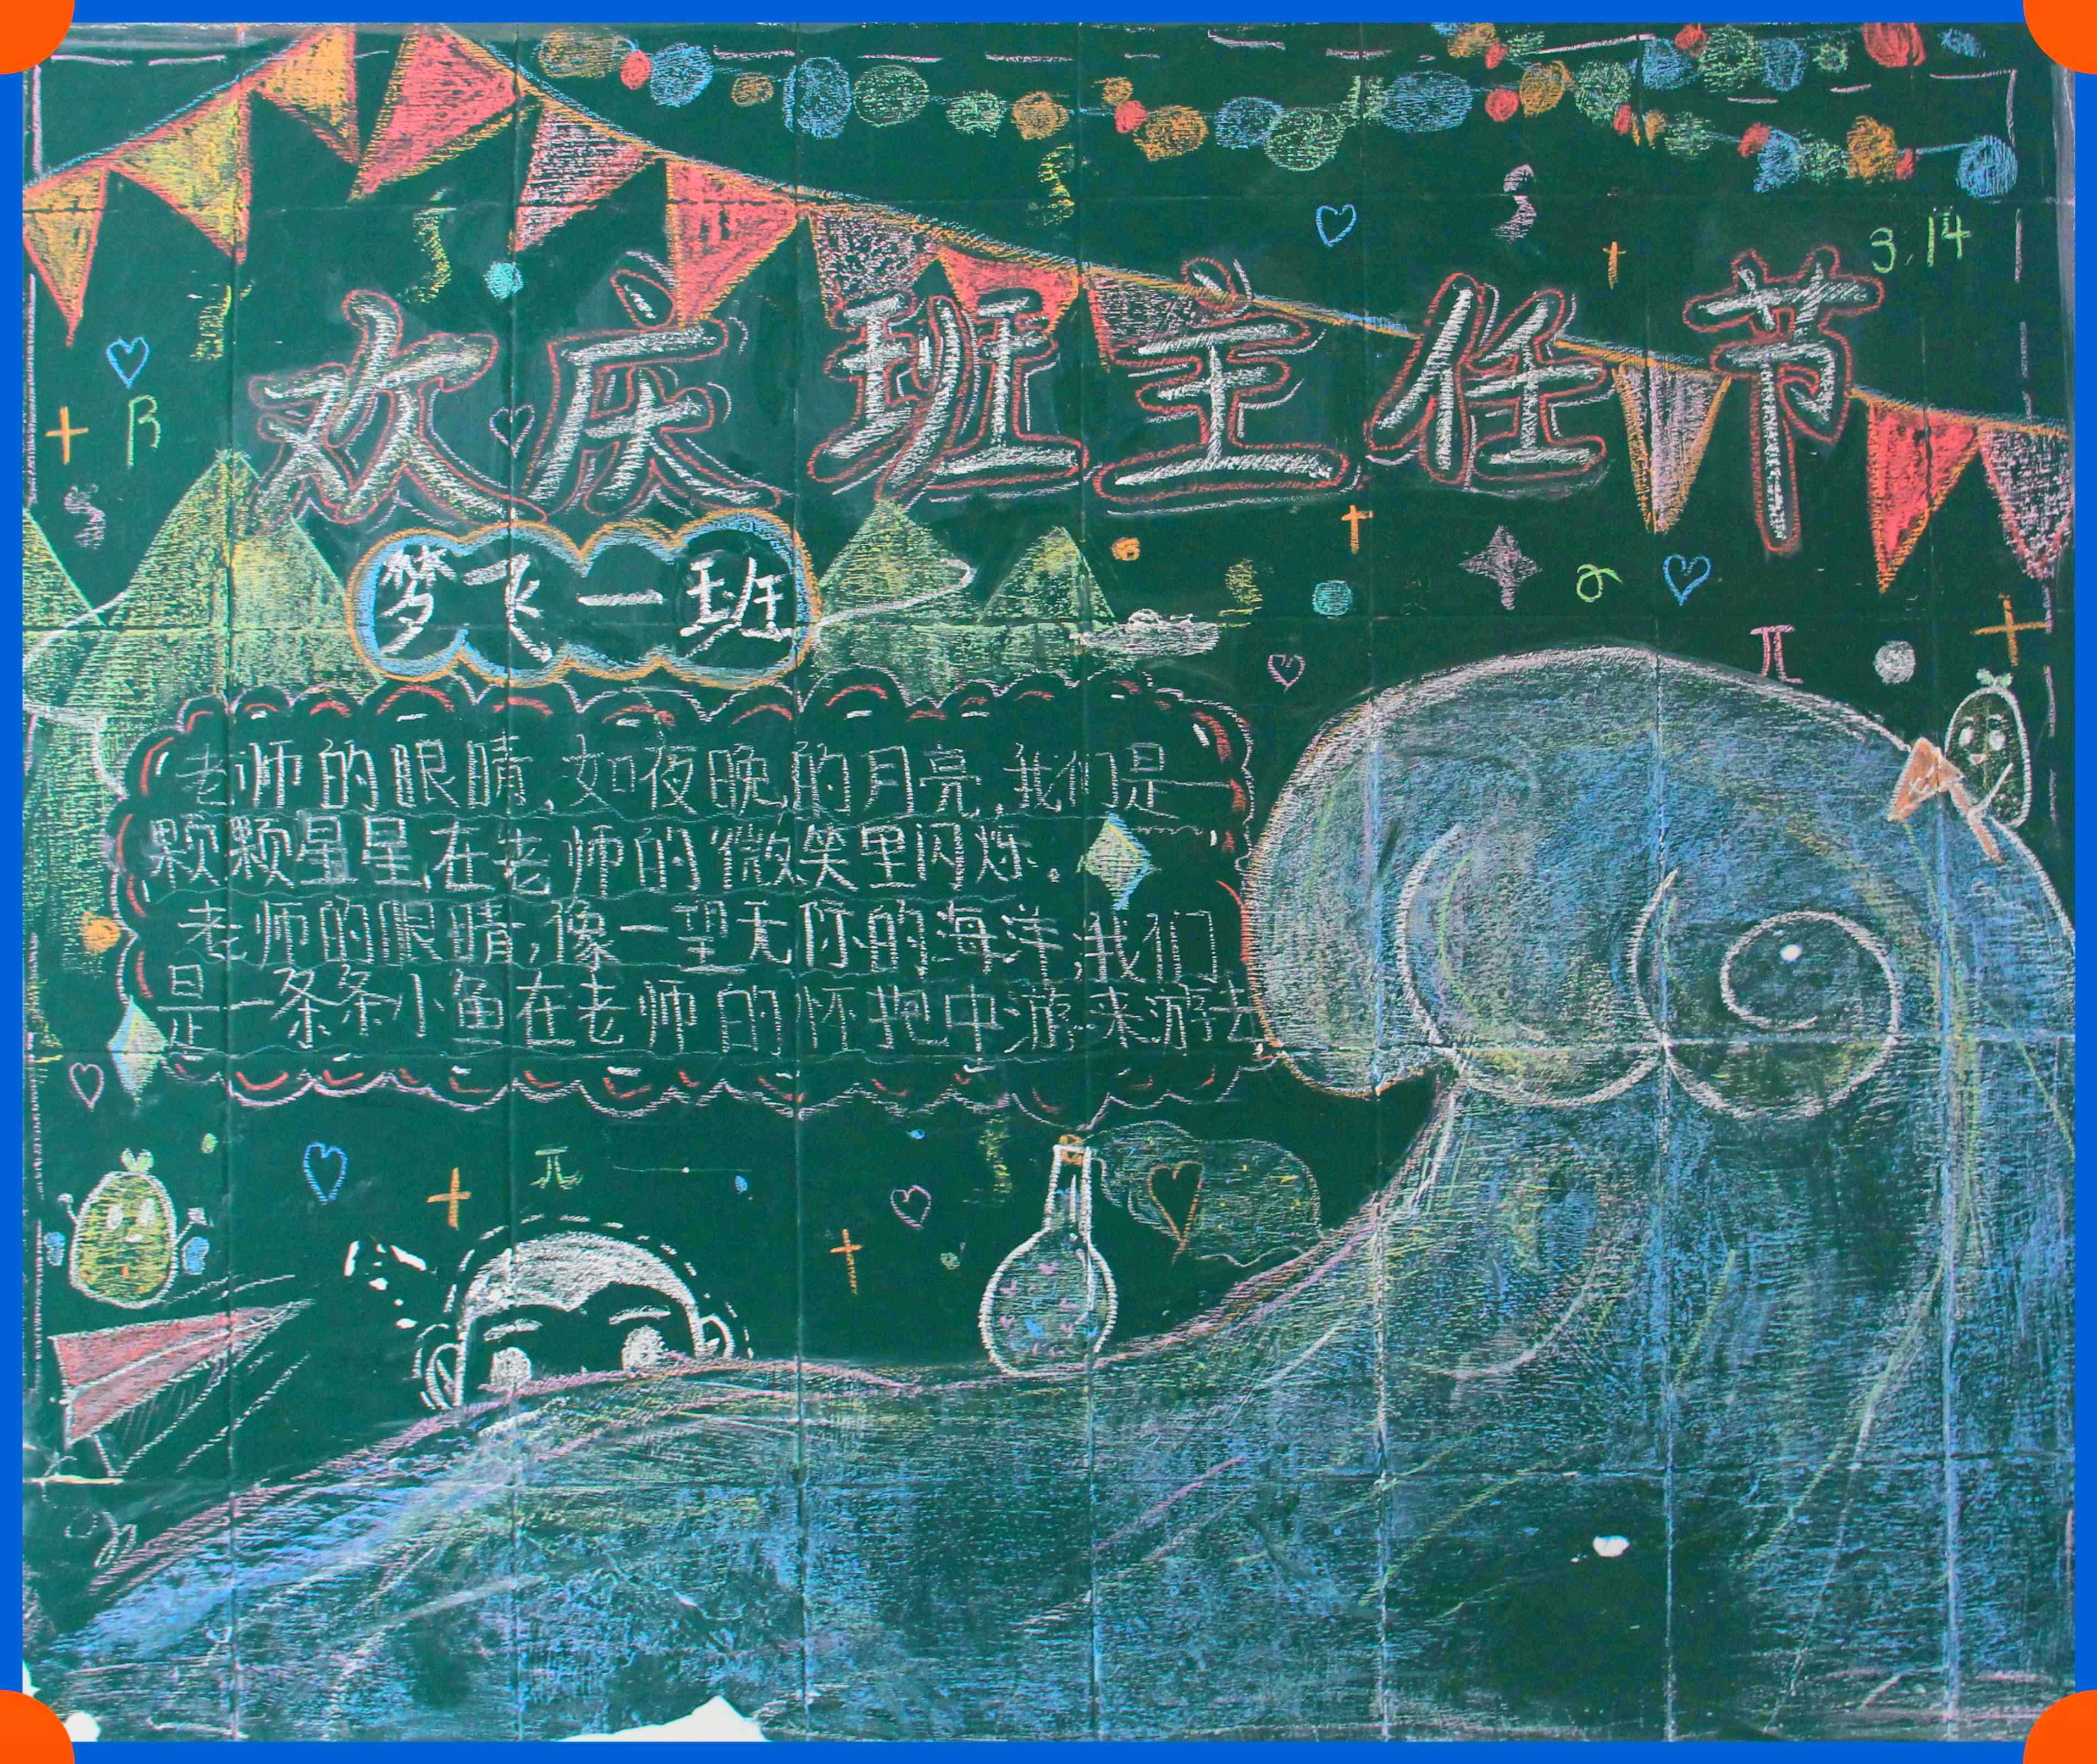 3.14
欢庆班主任节
R
梦飞一班
π
老师的眼睛,如夜晚的月亮,我们是一
颗颗星星,在老师的微笑里闪烁。
老师的眼睛,像一望无际的海洋,我们
是一条条小鱼在老师的怀抱中游来游去
π